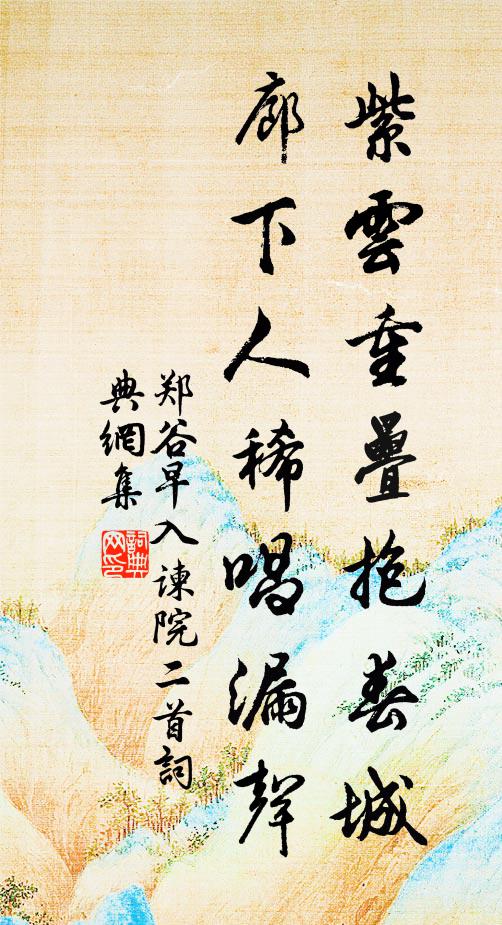 紫雲重疊抱春城
廊下人稀唱漏聲
郑谷早入諫院二首詞
典網集
詞典
网印